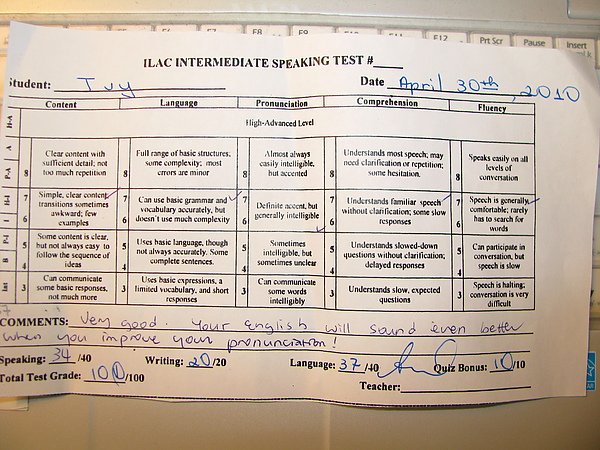 F7 F8 F9 F10 F11 F12 Prt Scr Pause Insert
ILAC INTERMEDIATE SPEAKING TEST #____
Student: Ivy Date April 30th, 2010
Content Language Pronunciation Comprehension Fluency
H-A
High-Advanced Level
A
P-A
8 Clear content with sufficient detail; not too much repetition
8 Full range of basic structures; some complexity; most errors are minor
8 Almost always easily intelligible, but accented
8 Understands most speech; may need clarification or repetition; some hesitation.
8 Speaks easily on all levels of conversation
H-I
I
7 6 Simple, clear content transitions sometimes awkward; few examples
7 6 Can use basic grammar and vocabulary accurately, but doesn't use much complexity
7 6 Definite accent, but generally intelligible
7 6 Understands familiar speech without clarification; some slow responses
7 6 Speech is generally comfortable; rarely has to search for words
P-I
B
5 4 Some content is clear, but not always easy to follow the sequence of ideas
5 4 Uses basic language, though not always accurately. Some complete sentences.
5 4 Sometimes intelligible, but sometimes unclear
5 4 Understands slowed-down questions without clarification; delayed responses
5 4 Can participate in conversation, but speech is slow
3 Can communicate some basic responses, not much more
3 Uses basic expressions, a limited vocabulary, and short responses
3 Can communicate some words intelligibly
3 Understands slow, expected questions
3 Speech is halting; conversation is very difficult
COMMENTS: Very good. Your english will sound even better
when you improve your pronunciation!
Speaking: 34 /40 Writing: 20/20 Language: 37 /40 Quiz Bonus: 10/10
Total Test Grade: 100/100 Teacher: